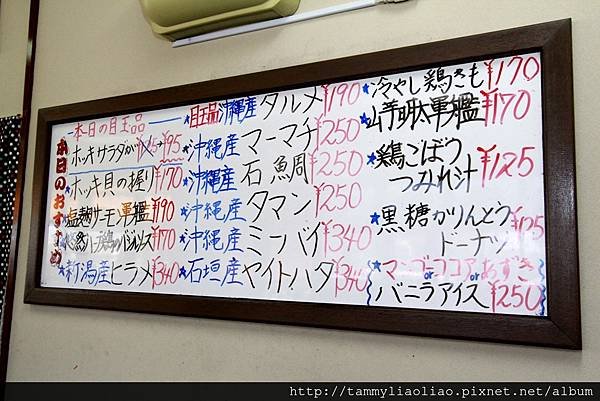 本日のおすすめ
本日の目玉品
ホッキサラダ ¥95
ホッキ貝の握り ¥170
塩麹サーモン軍艦 ¥190
¥170
新潟産ヒラメ ¥340
目玉品 沖縄産 タルメ ¥190
沖縄産 マーマチ ¥250
沖縄産 石鯛 ¥250
沖縄産 タマン ¥250
沖縄産 ミーバイ ¥340
石垣産 ヤイトハタ ¥340
冷やし鶏きも ¥170
山芋明太軍艦 ¥170
鶏ごぼう
つみれ汁 ¥125
黒糖かりんとう
ドーナツ ¥125
マンゴー or ココア or あずき
バニラアイス ¥250
http://tammyliaoliao.pixnet.net/album